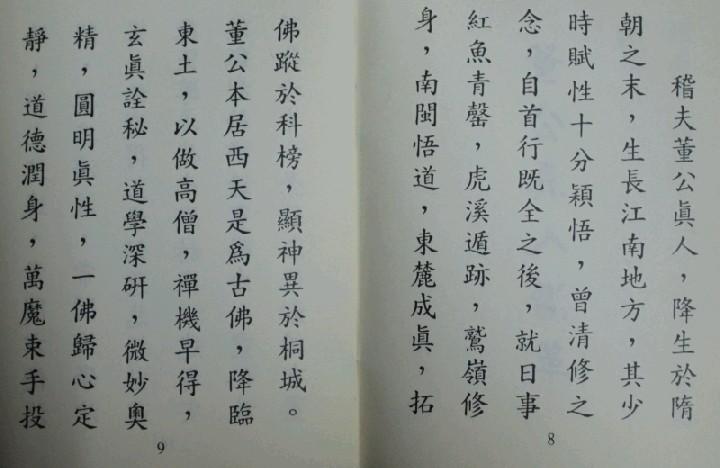 稽夫董公眞人，降生於隋
朝之末，生長江南地方，其少
時賦性十分穎悟，曾清修之
念，自首行既全之後，就日事
紅魚青罄，虎溪遁跡，鷲嶺修
身，南閩悟道，東麓成眞，拓
8
佛蹤於科榜，顯神異於桐城。
董公本居西天是爲古佛，降臨
東土，以做高僧，禪機早得，
玄眞詮秘，道學深研，微妙奧
精，圓明眞性，一佛歸心定
靜，道德潤身，萬魔束手投
9